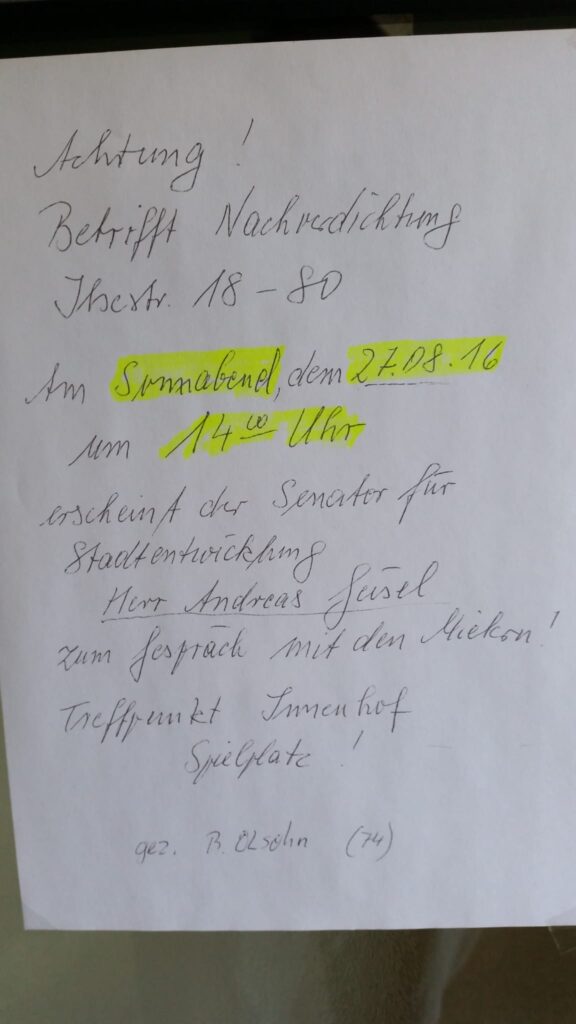 Achtung !
Betrifft Nachverdichtung
Ibsestr. 18 - 80
Am Sonnabend, dem 27.08.16
um 14 00 Uhr
erscheint der Senator für
Stadtentwicklung
Herr Andreas Geisel
zum Gespräch mit den Mietern!
Treffpunkt Innenhof
Spielplatz !
gez. B. Olsohn (74)